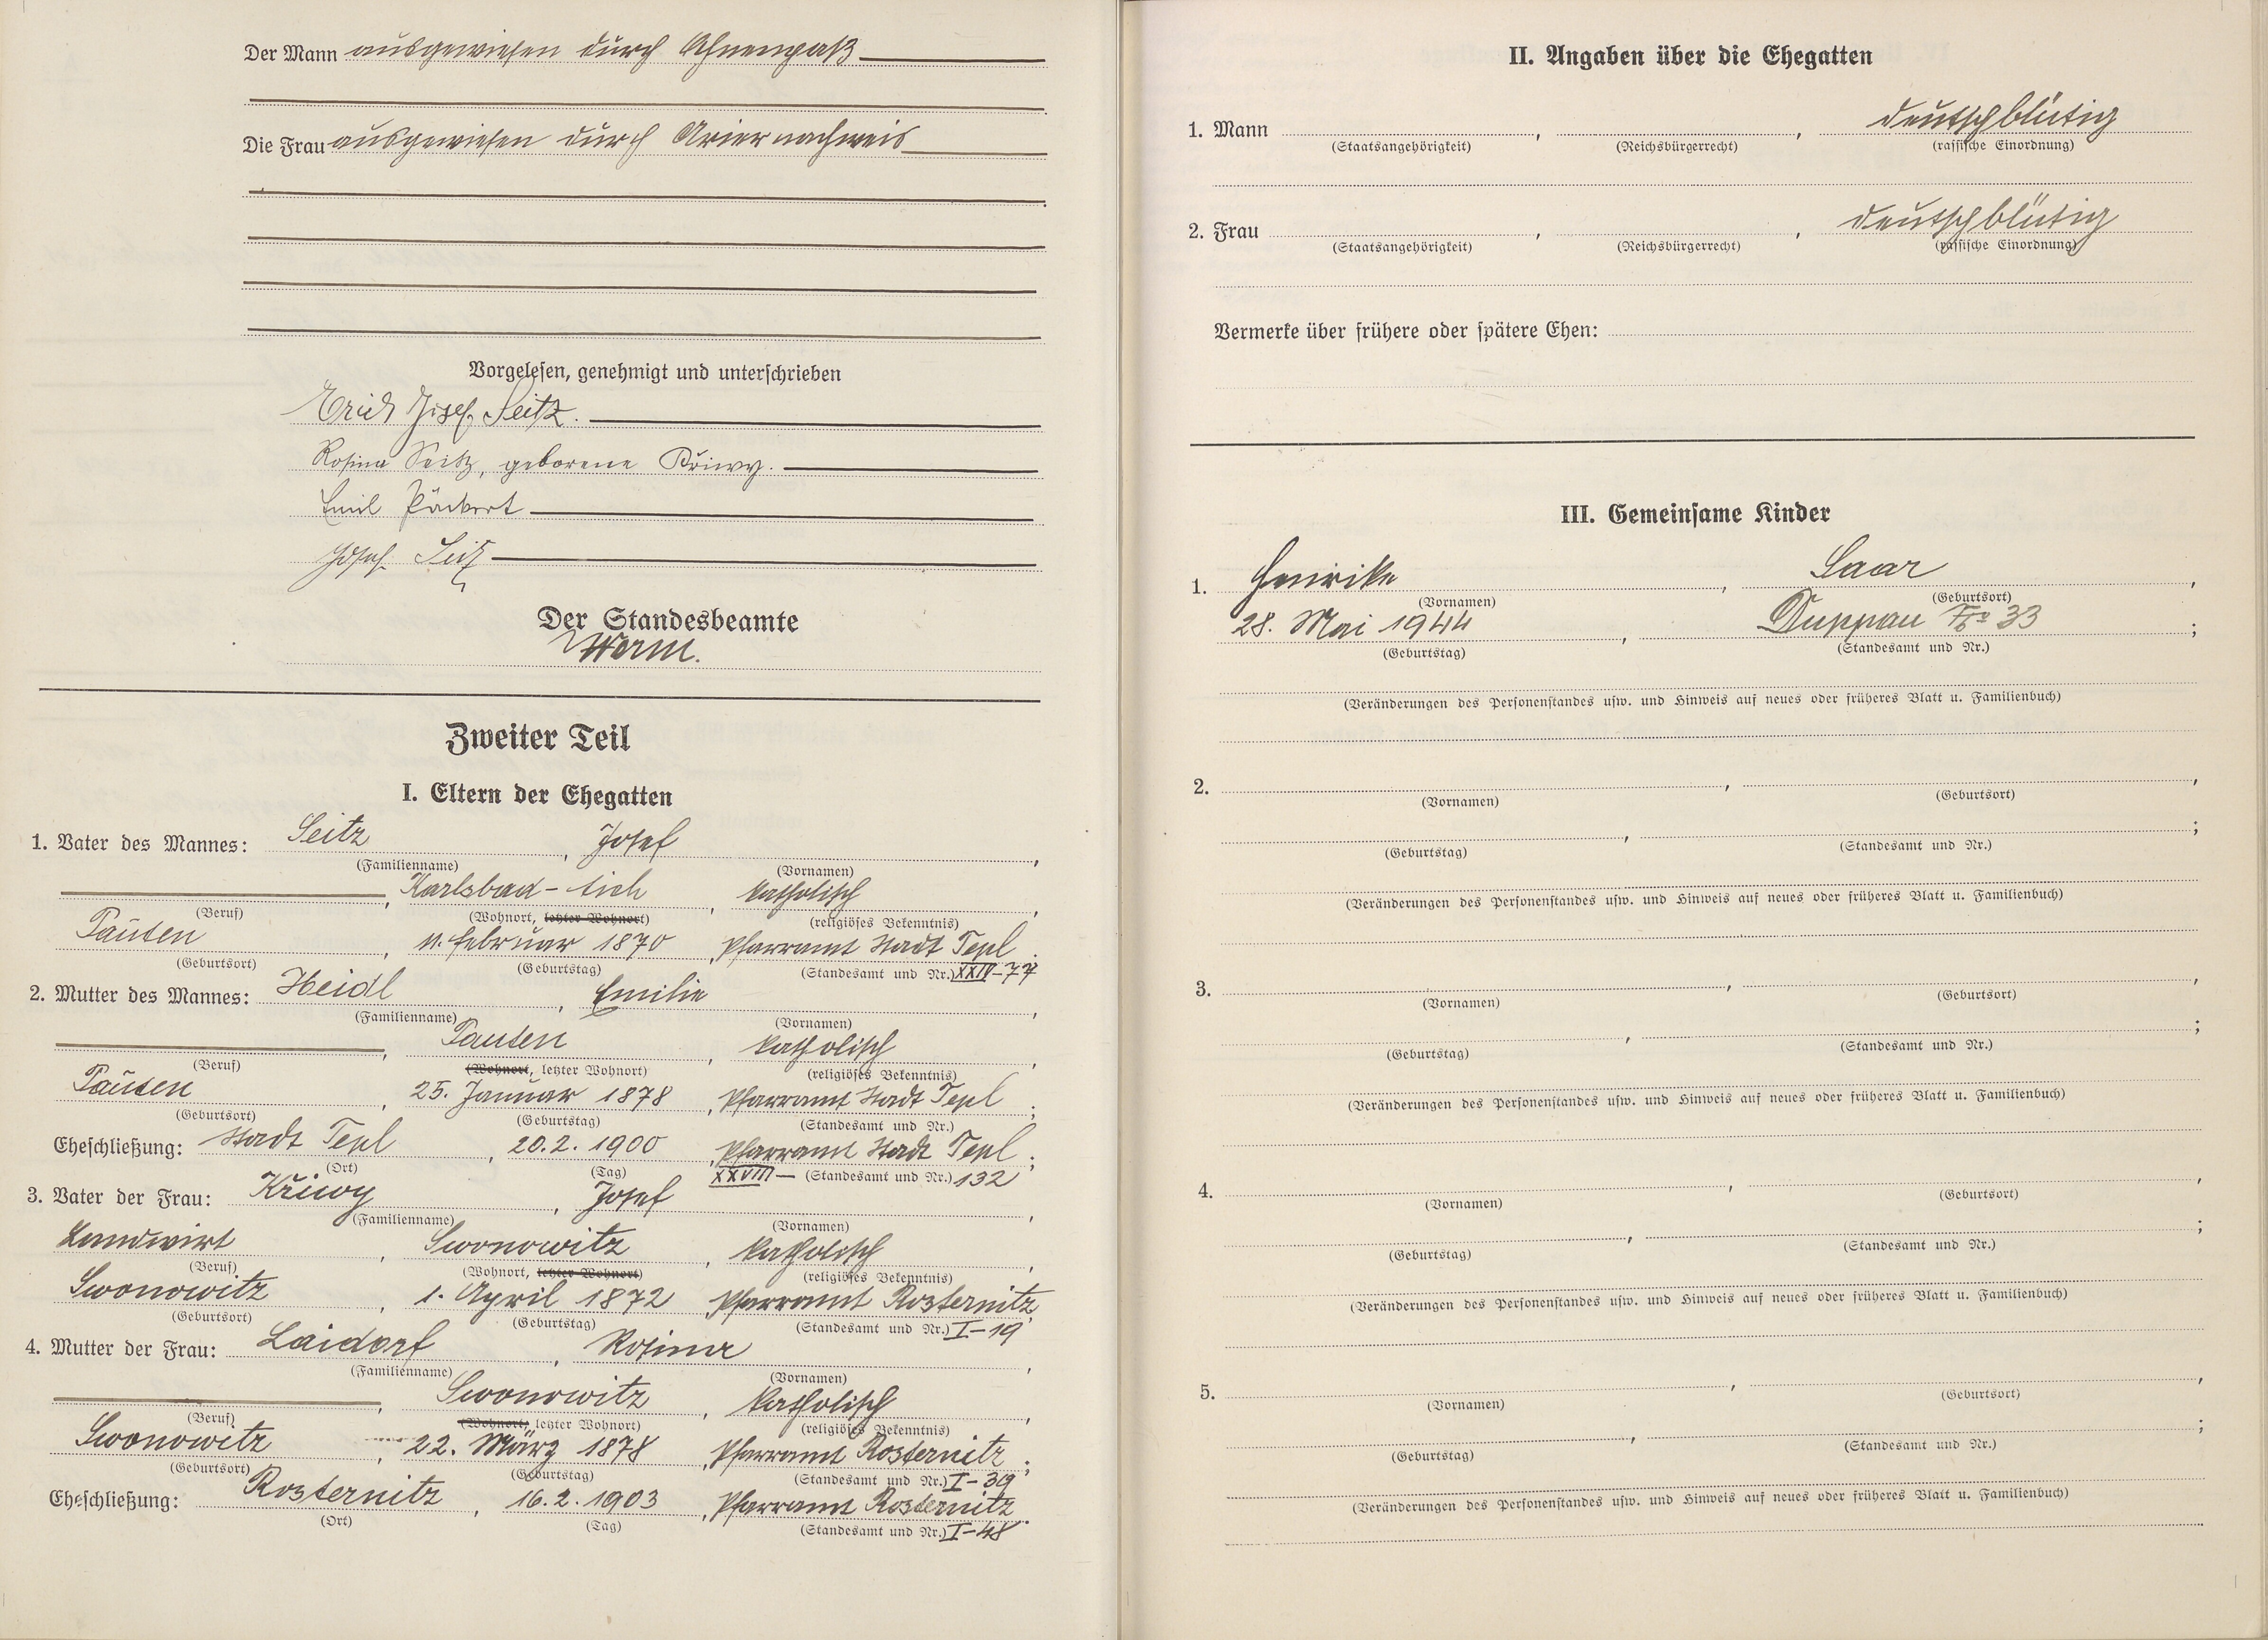 Der Mann ausgewiesen durch Ahnenpaß
Die Frau ausgewiesen durch Ariernachweis
Vorgelesen, genehmigt und unterschrieben
Erich Josef Seitz.
Rosina Seitz, geborene Křiwy.
Emil
Josef Seitz
Der Standesbeamte
Worm.
Zweiter Teil
I. Eltern der Ehegatten
1. Vater des Mannes: Seitz, Josef,
(Familienname) (Vornamen)
, Karlsbad-Aich, katholisch,
(Beruf) (Wohnort, letzter Wohnort) (religiöses Bekenntnis)
Pauten, 11. Februar 1870, Pfarramt Stadt Tepl
(Geburtsort) (Geburtstag) (Standesamt und Nr.) XXIV-77
2. Mutter des Mannes: Heidl, Emilie,
(Familienname) (Vornamen)
, Pauten, katholisch,
(Beruf) (Wohnort, letzter Wohnort) (religiöses Bekenntnis)
Pauten, 25. Januar 1878, Pfarramt Stadt Tepl;
(Geburtsort) (Geburtstag) (Standesamt und Nr.)
Eheschließung: Stadt Tepl, 20.2.1900, Pfarramt Stadt Tepl;
(Ort) (Tag) XXVIII- (Standesamt und Nr.) 132
3. Vater der Frau: Křiwy, Josef,
(Familienname) (Vornamen)
Landwirt, Swonowitz, katholisch,
(Beruf) (Wohnort, letzter Wohnort) (religiöses Bekenntnis)
Swonowitz, 1. April 1872 Pfarramt Rosternitz
(Geburtsort) (Geburtstag) (Standesamt und Nr.) I-19
4. Mutter der Frau: Laidorf, Rosina,
(Familienname) (Vornamen)
, Swonowitz, katholisch,
(Beruf) (Wohnort, letzter Wohnort) (religiöses Bekenntnis)
Swonowitz, 22. März 1878, Pfarramt Rosternitz;
(Geburtsort) (Geburtstag) (Standesamt und Nr.) I-39
Eheschließung: Rosternitz, 16.2.1903, Pfarramt Rosternitz.
(Ort) (Tag) (Standesamt und Nr.) I-48
II. Angaben über die Ehegatten
1. Mann , , deutschblütig
(Staatsangehörigkeit) (Reichsbürgerrecht) (rassische Einordnung)
2. Frau , , deutschblütig
(Staatsangehörigkeit) (Reichsbürgerrecht) (rassische Einordnung)
Vermerke über frühere oder spätere Ehen:
III. Gemeinsame Kinder
1. Henrike, Saar,
(Vornamen) (Geburtsort)
28. Mai 1944, Duppau No 33;
(Geburtstag) (Standesamt und Nr.)
(Veränderungen des Personenstandes usw. und Hinweis auf neues oder früheres Blatt u. Familienbuch)
2. , ,
(Vornamen) (Geburtsort)
, ;
(Geburtstag) (Standesamt und Nr.)
(Veränderungen des Personenstandes usw. und Hinweis auf neues oder früheres Blatt u. Familienbuch)
3. , ,
(Vornamen) (Geburtsort)
, ;
(Geburtstag) (Standesamt und Nr.)
(Veränderungen des Personenstandes usw. und Hinweis auf neues oder früheres Blatt u. Familienbuch)
4. , ,
(Vornamen) (Geburtsort)
, ;
(Geburtstag) (Standesamt und Nr.)
(Veränderungen des Personenstandes usw. und Hinweis auf neues oder früheres Blatt u. Familienbuch)
5. , ,
(Vornamen) (Geburtsort)
, ;
(Geburtstag) (Standesamt und Nr.)
(Veränderungen des Personenstandes usw. und Hinweis auf neues oder früheres Blatt u. Familienbuch)